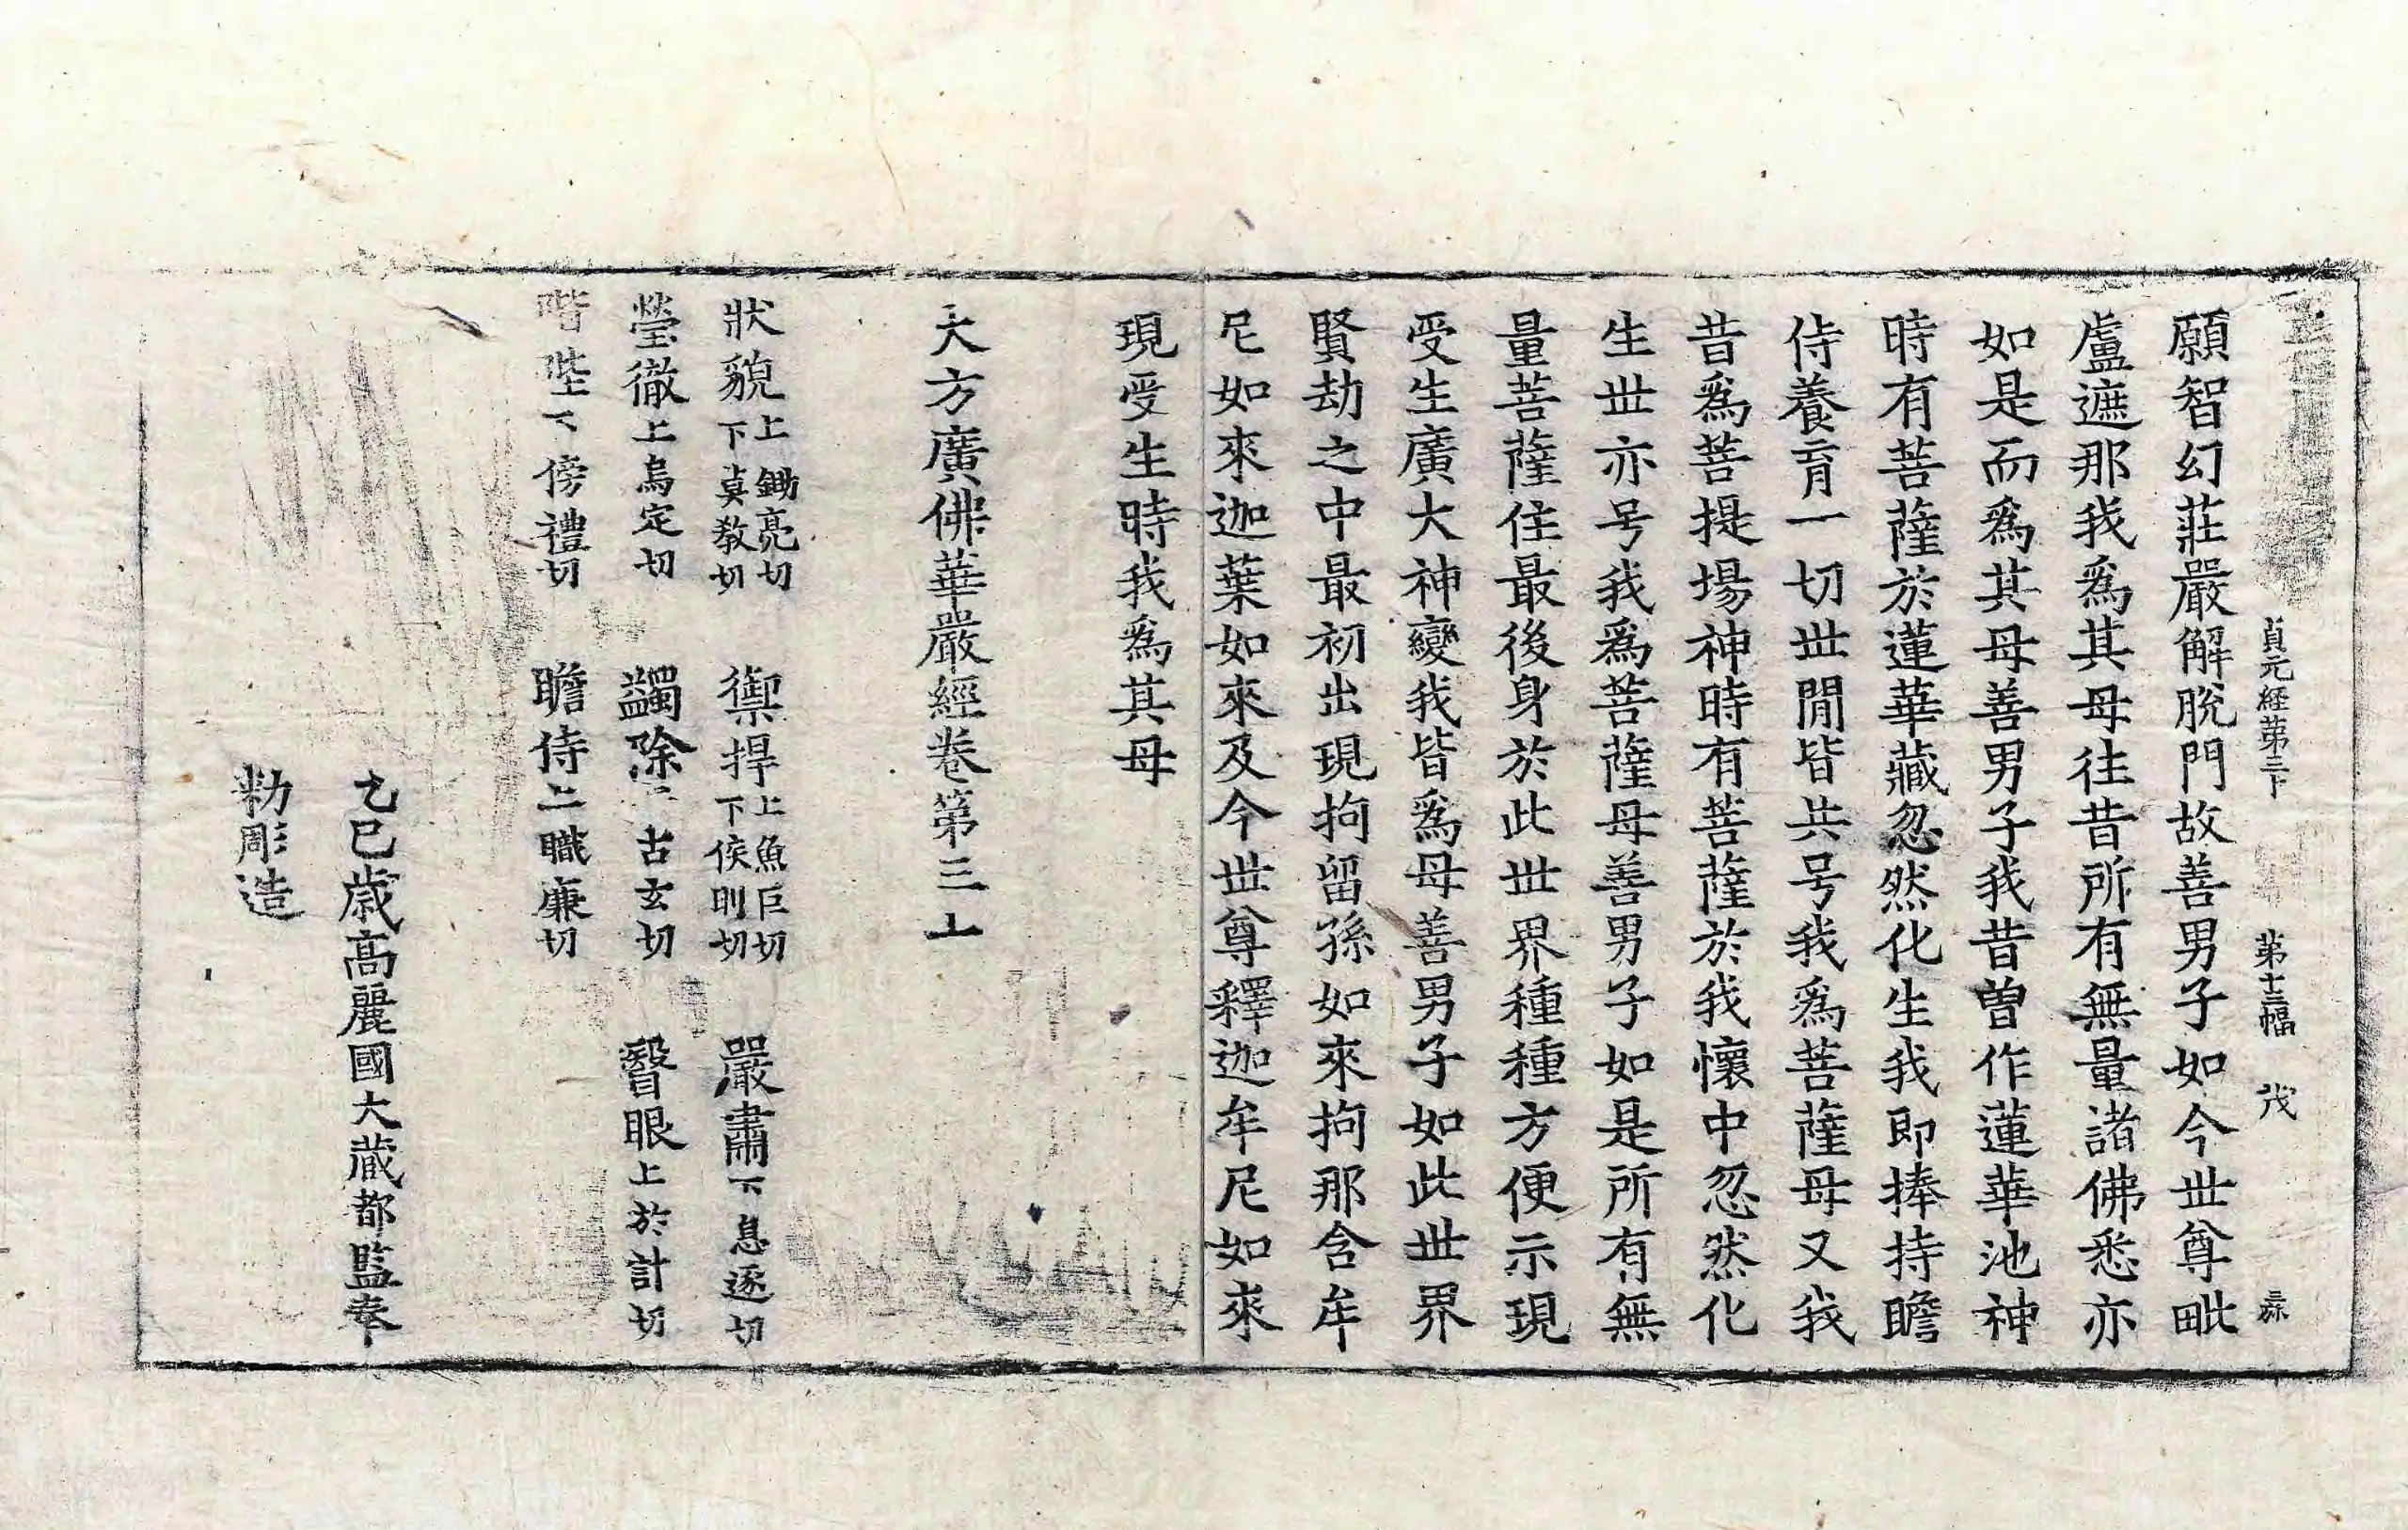 貞元経第三下 第十三幅 茂
願智幻莊嚴解脫門故善男子如今世尊毗
盧遮那我爲其母往昔所有無量諸佛悉亦
如是而爲其母善男子我昔曽作蓮華池神
時有菩薩於蓮華藏忽然化生我即捧持瞻
侍養育一切世間皆共号我爲菩薩母又我
昔爲菩提場神時有菩薩於我懷中忽然化
生世亦号我爲菩薩母善男子如是所有無
量菩薩住最後身於此世界種種方便示現
受生廣大神變我皆爲母善男子如此世界
賢劫之中最初出現拘留孫如來拘那含牟
尼如來迦葉如來及今世尊釋迦牟尼如來
現受生時我爲其母
大方廣佛華嚴經卷第三
狀貌上鋤亮切下莫教切 禦捍上魚巨切下侯旰切 嚴肅下息逐切
瑩徹上烏定切 蠲除上古玄切 瞖眼上於計切
階陛下傍禮切 瞻侍上職廉切
乙巳歳高麗國大蔵都監奉
勑彫造